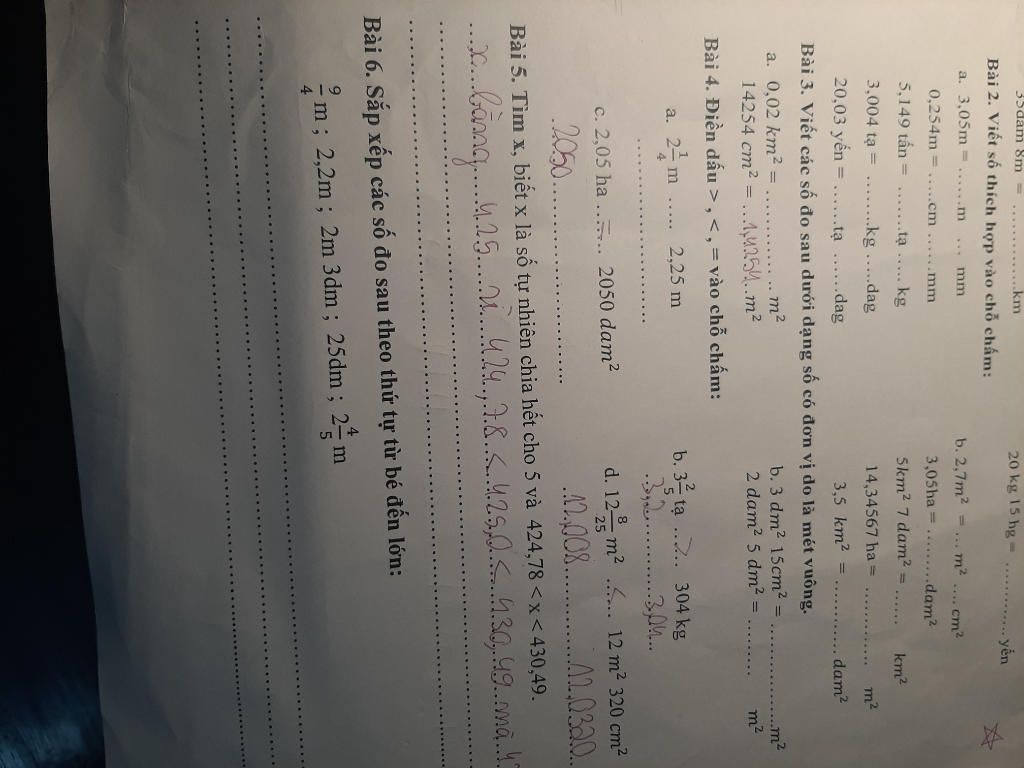 35dam 8m = ............km
20 kg 15 hg = ............ yến
Bài 2. Viết số thích hợp vào chỗ chấm:
a. 3,05m = .......m .... mm
b. 2,7m² = ... m² .... cm²
0,254m = ......cm ......mm
3,05ha = ..........dam²
5,149 tấn = .......tạ ..... kg
5km² 7 dam² = ....... km²
3,004 tạ = .........kg .....dag
14,34567 ha = ............ m²
20,03 yến = .......tạ ......dag
3,5 km² = ............ dam²
Bài 3. Viết các số đo sau dưới dạng số có đơn vị đo là mét vuông.
a. 0,02 km² = .............. m²
b. 3 dm² 15cm² = ..............m²
14254 cm² = ...1,4254..m²
2 dam² 5 dm² = .......... m²
Bài 4. Điền dấu > , < , = vào chỗ chấm:
a. 2 1/4 m ..... 2,25 m
b. 3 2/5 tạ ...>... 304 kg
3,04
c. 2,05 ha ...=... 2050 dam²
d. 12 8/25 m² ..<.... 12 m² 320 cm²
2050
12,008 12,0320
Bài 5. Tìm x, biết x là số tự nhiên chia hết cho 5 và 424,78 < x < 430,49.
x bằng 425 vì 424,78 < 425,0 < 430,49 mà
Bài 6. Sắp xếp các số đo sau theo thứ tự từ bé đến lớn:
9/4 m ; 2,2m ; 2m 3dm ; 25dm ; 2 4/5 m